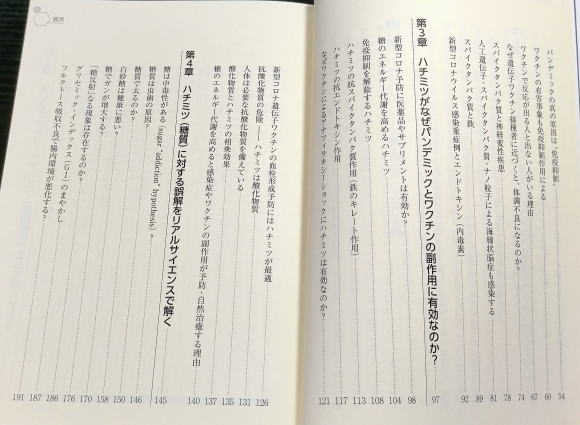 パンデミックの真の原因は、免疫抑制 54
ワクチンの有害事象も免疫抑制作用による 60
ワクチンで反応が出る人と出ない人がいる理由 67
なぜ遺伝子ワクチン接種者に近づくと、体調不良になるのか? 74
スパイクタンパク質と神経変性疾患 78
スパイクタンパク質と鉄 81
人工遺伝子・スパイクタンパク質・ナノ粒子による海綿状脳症も感染する 89
新型コロナウイルス感染重症例とエンドトキシン(内毒素) 92
第3章 ハチミツがなぜパンデミックとワクチンの副作用に有効なのか? 97
新型コロナ予防に医薬品やサプリメントは有効か? 98
糖のエネルギー代謝を高めるハチミツ 104
免疫抑制を解除するハチミツ 108
ハチミツの抗スパイクタンパク質作用(鉄のキレート作用) 113
ハチミツの抗エンドトキシン作用 117
なぜワクチンによるアナフィラキシーショックにハチミツは有効なのか? 121
目次
新型コロナ遺伝子ワクチンの血栓形成予防にはハチミツが最適 126
抗酸化物質の危険 ハチミツは酸化物質 131
人体は必要な抗酸化物質を備えている 135
酸化物質とハチミツの相乗効果 137
糖のエネルギー代謝を高めると感染症やワクチンの副作用が予防・自然治癒する理由 140
第4章 ハチミツ(糖質)に対する誤解をリアルサイエンスで解く 145
糖は中毒性がある(sugar "addiction" hypothesis)? 146
糖質は虫歯の原因? 148
糖質で太るのか? 150
白砂糖は健康に悪い? 158
糖でガンが増大する? 170
「糖反射」なる現象は存在するのか? 176
グリセミック・インデックス(GI)のまやかし 186
フルクトース吸収不良で腸内環境が悪化する? 187
191